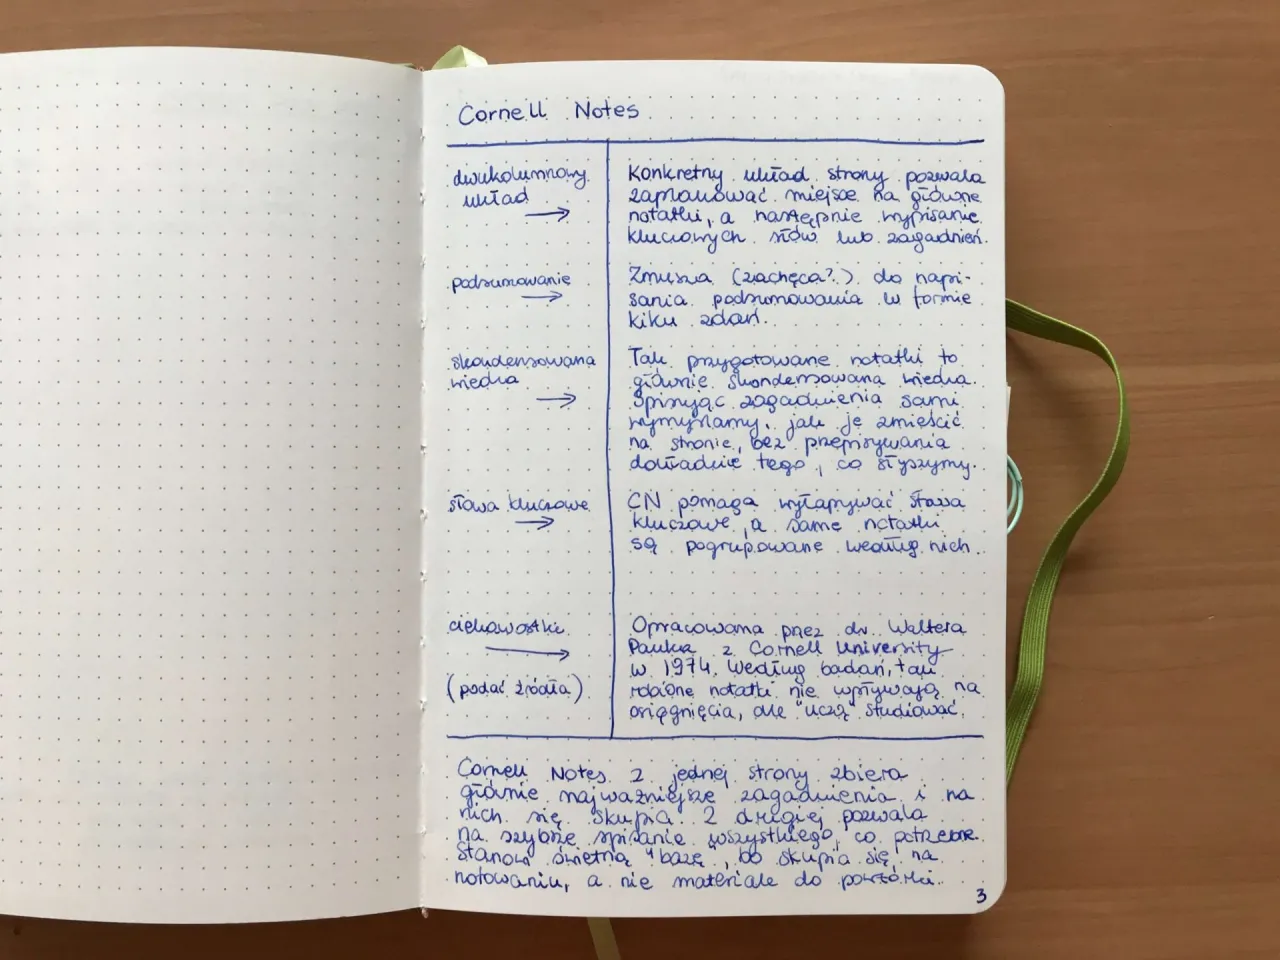 Cornell Notes
dwukolumnowy
układ
Konkretny układ strony pozwala
zaplanować miejsce na główne
notatki, a następnie wypisanie
kluczowych słów lub zagadnień.
podsumowanie
Zmusza (zachęca?) do napi-
sania podsumowania w formie
kilku zdań.
skondensowana
wiedza
Tak przygotowane notatki to
głównie skondensowana wiedza.
Spisując zagadnienia sami
wymyślamy, jak je zmieścić
na stronie, bez przepisywania
dokładnie tego, co słyszymy.
słowa kluczowe
CN pomaga wyłapywać słowa
kluczowe, a same notatki
są pogrupowane według nich.
ciekawostki
(podać źródła)
Opracowana przez dr. Waltera
Pauka z Cornell University
w 1974. Według badań, tak
robione notatki nie wpływają na
osiągnięcia, ale "uczą" studiować.
Cornell Notes z jednej strony zbiera
głównie najważniejsze zagadnienia i na
nich się skupia. Z drugiej pozwala
na szybkie spisanie wszystkiego, co potrzebne.
Stanowi świetną "bazę", bo skupia się na
notowaniu, a nie materiale do powtórki.
3